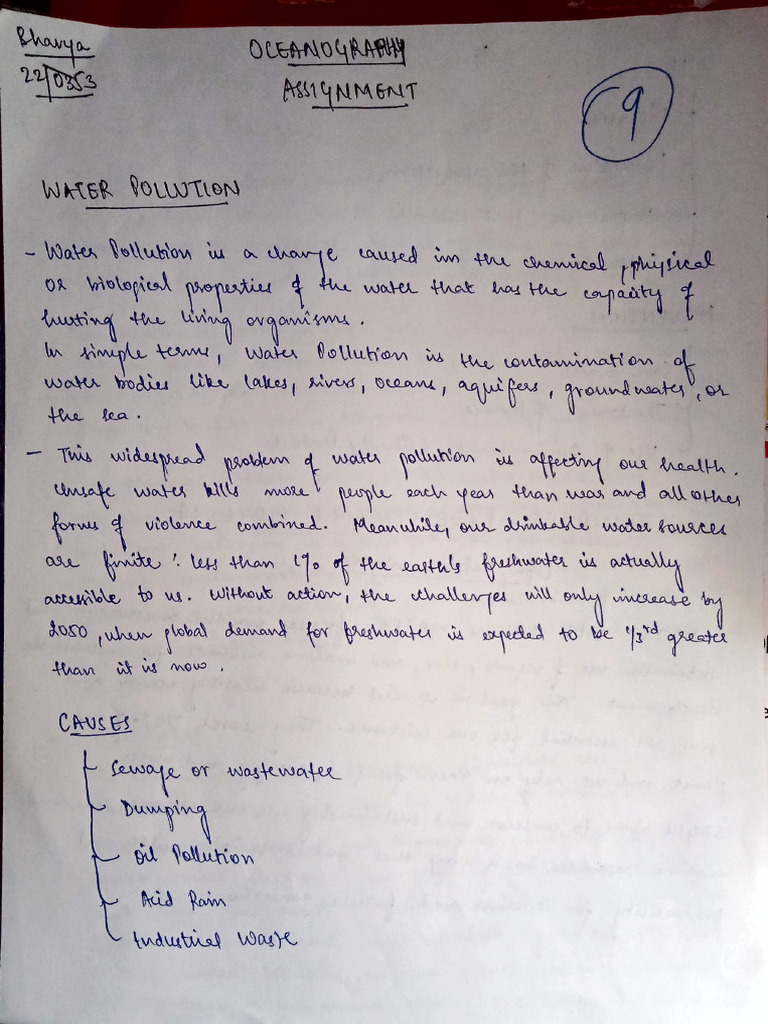 Bhavya
22/0353
OCEANOGRAPHY
ASSIGNMENT
9
WATER POLLUTION
- Water Pollution is a change caused in the chemical, physical
or biological properties of the water that has the capacity of
hurting the living organisms.
In simple terms, Water Pollution is the contamination of
water bodies like lakes, rivers, oceans, aquifers, groundwater, or
the sea.
- This widespread problem of water pollution is affecting our health.
Unsafe water kills more people each year than war and all other
forms of violence combined. Meanwhile, our drinkable water sources
are finite: less than 1% of the earth's freshwater is actually
accessible to us. Without action, the challenges will only increase by
2050, when global demand for freshwater is expected to be 1/3rd greater
than it is now.
CAUSES
Sewage or wastewater
Dumping
Oil Pollution
Acid Rain
Industrial Waste